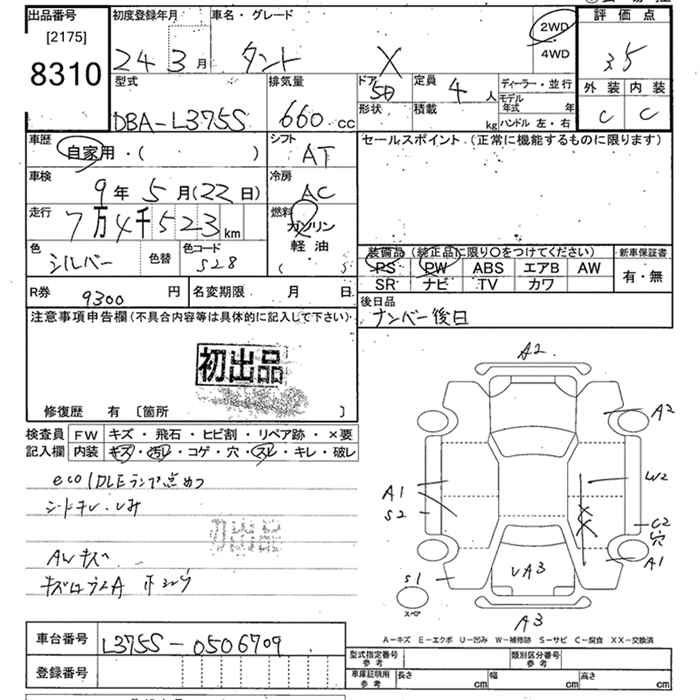 出品番号 初度登録年月 車名・グレード 評価点
[2175]
8310
24 3月 タント X 2WD 4WD 3.5
型式 排気量 ドア 定員 ディーラー・並行 外装 内装
DBA-L375S 660cc 5D 4人 モデル年式 年 C C
形状 積載 kg ハンドル 左・右
車歴 シフト セールスポイント.(正常に機能するものに限ります)
自家用・( ) AT
車検 冷房
9年 5月(22日) AC
走行 燃料
7万4千523km ガソリン
軽油
( s)
色 色替 色コード 装備品(純正品に限り○をつけてください) 新車保証書
シルバー S28 PS PW ABS エアB AW 有・無
SR ナビ TV カワ
R券 9300円 名変期限 月 日 後日品
ナンバー後日
注意事項申告欄(不具合内容等は具体的に記入して下さい)
初出品
修復歴 有 〔箇所 〕
検査員 FW キズ・飛石・ヒビ割・リペア跡・×要
記入欄 内装 キズ・汚レ・コゲ・穴・スレ・キレ・破レ
eco IDLEランプ点めつ
AWキズ
A2
A2
A1 W2
S2 C2
穴
A1
S1 UA3
スペアー
A3
A-キズ E-エクボ U-凹み W-補修跡 S-サビ C-腐食 XX-交換済
車台番号 L375S-0506709
登録番号
型式指定番号 参考 類別区分番号 参考
車庫証明用 参考 長さ cm 幅 cm 高さ cm